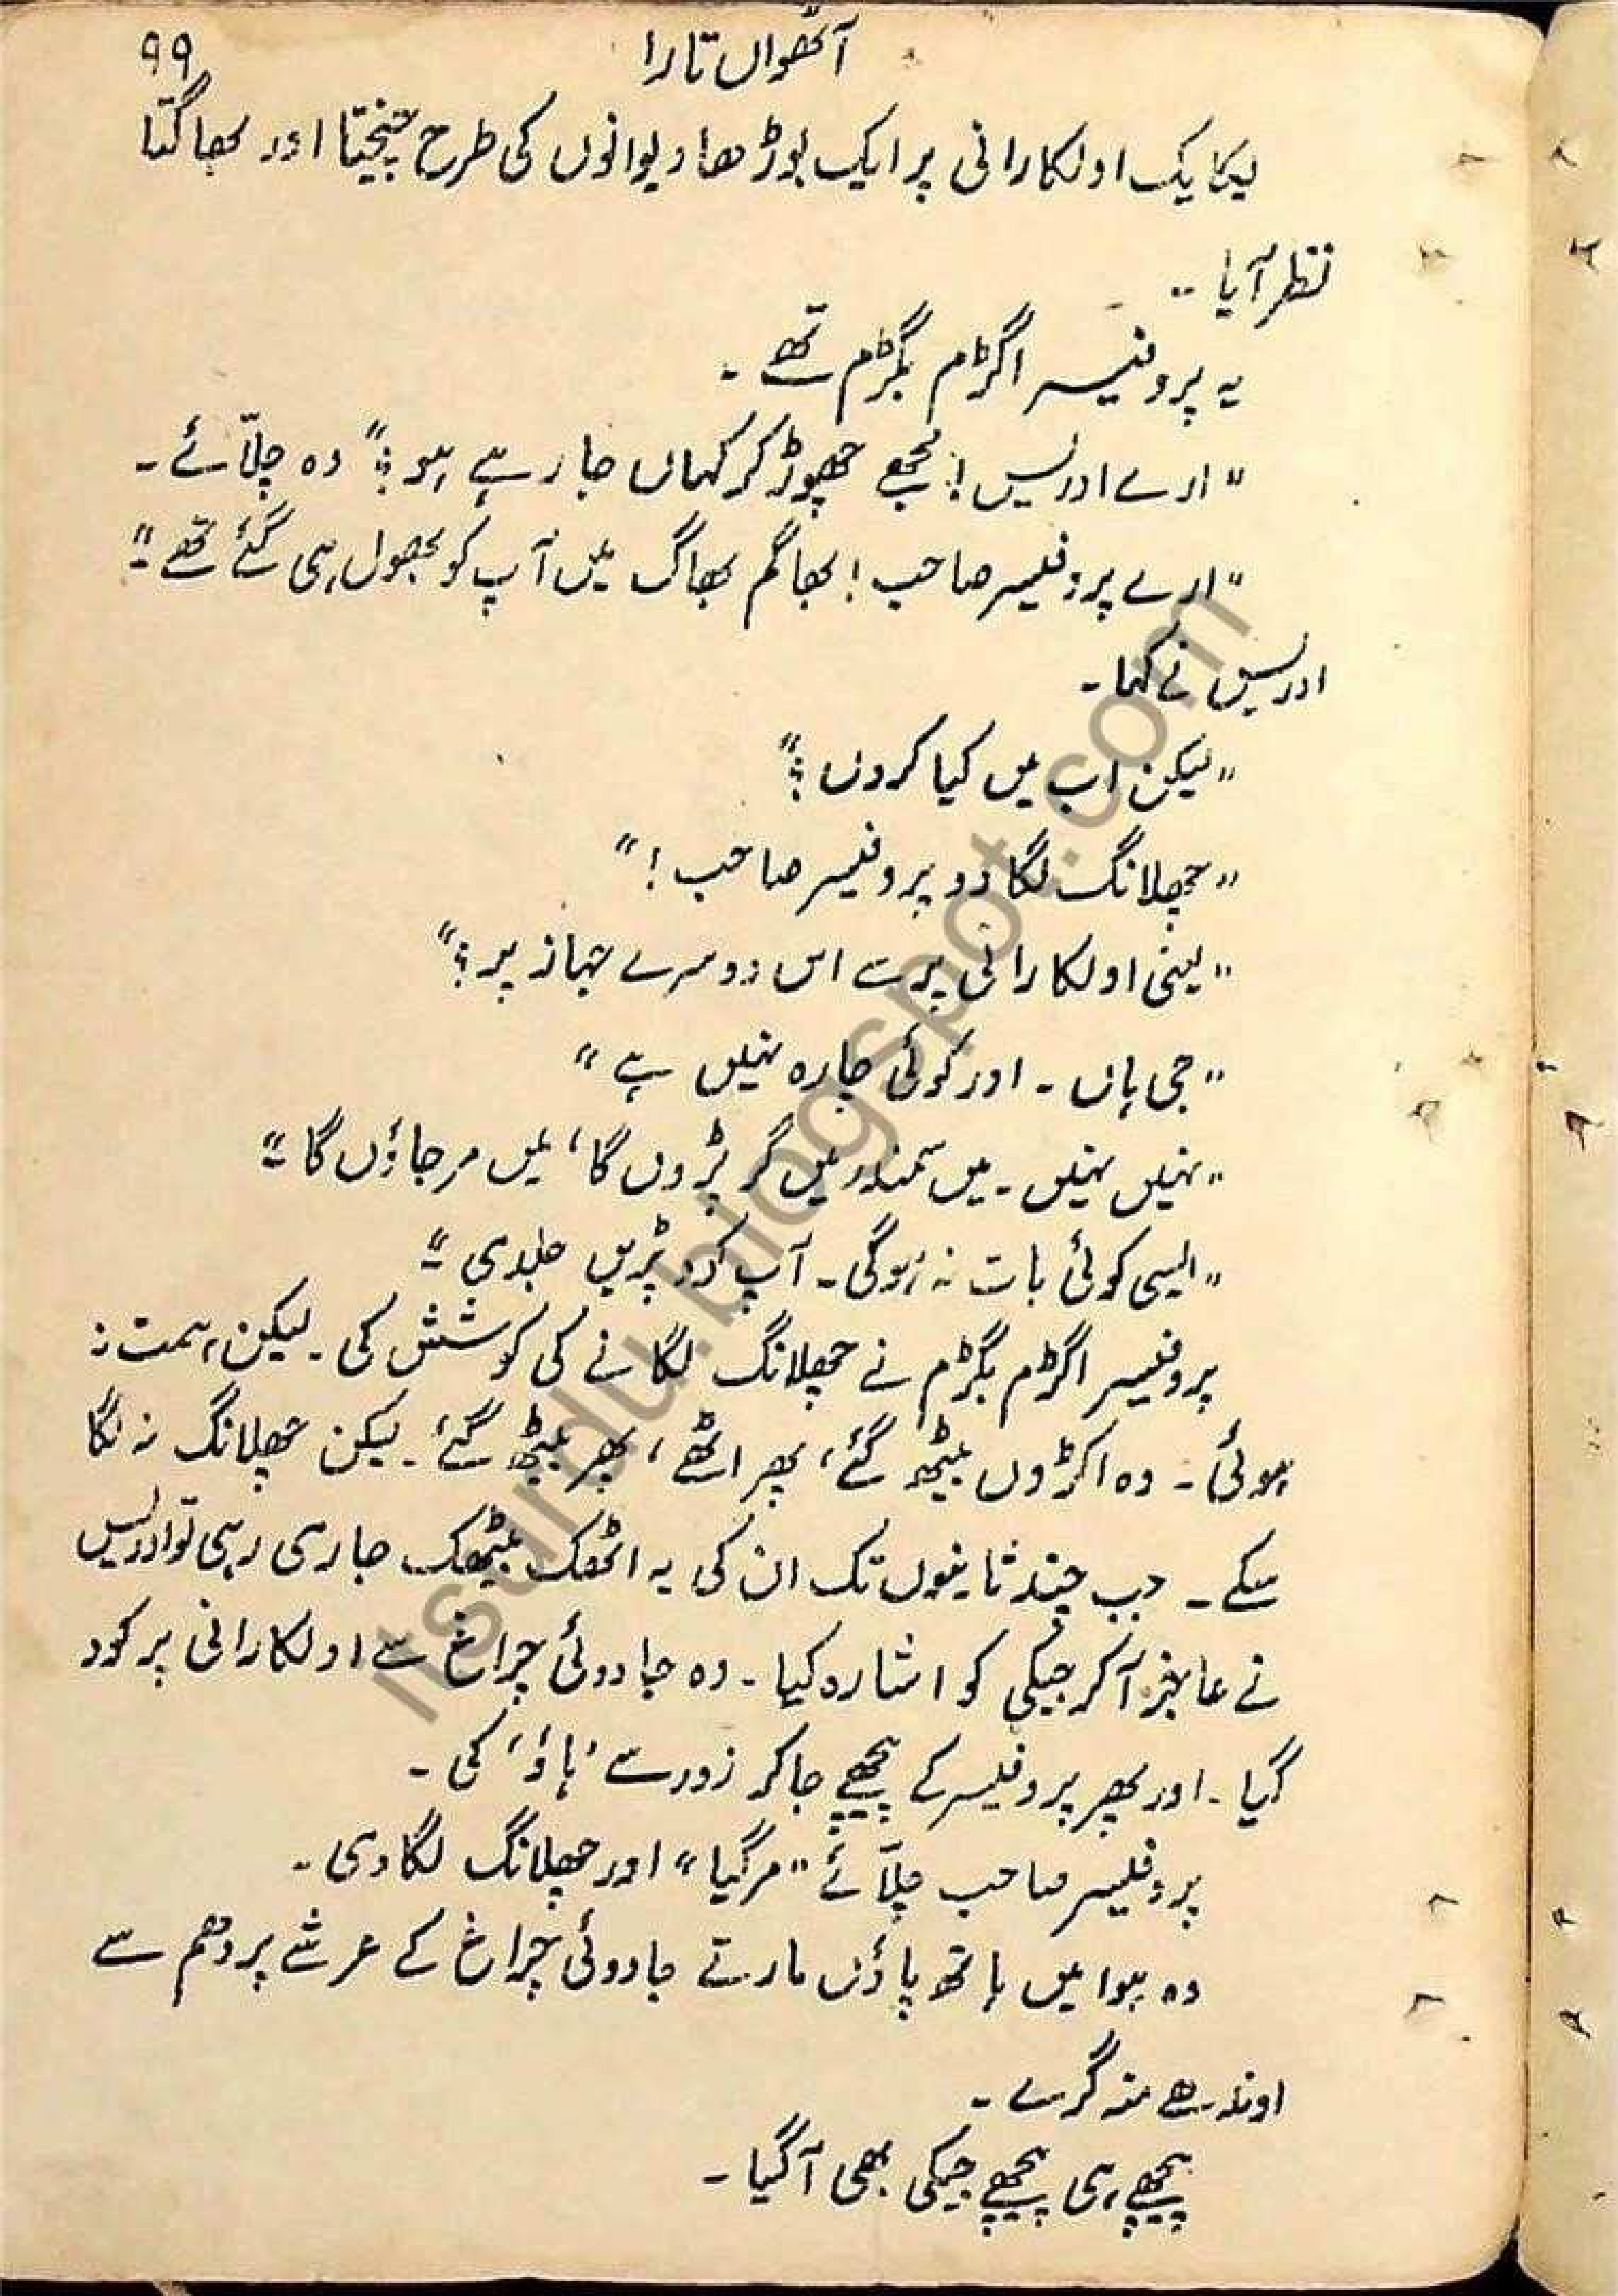 آٹھواں تارا
۹۹
یکایک اولکارانی پر ایک بوڑھا دیوانوں کی طرح چیختا اور بھاگتا
نظر آیا ۔۔
یہ پروفیسر اگڑم بگڑم تھے ۔
"ارے ادریس! مجھے چھوڑ کر کہاں جا رہے ہو؟" وہ چلّائے ۔
"ارے پروفیسر صاحب! بھاگم بھاگ میں آپ کو بھول ہی گئے تھے ۔"
ادریس نے کہا ۔
"لیکن اب میں کیا کروں؟"
"چھلانگ لگا دو پروفیسر صاحب!"
"یعنی اولکارانی پر سے اس دوسرے جہاز پر؟"
"جی ہاں ۔ اور کوئی چارہ نہیں ہے"
"نہیں نہیں ۔ میں سمندر میں گر پڑوں گا، میں مر جاؤں گا ۔"
"ایسی کوئی بات نہ ہوگی ۔ آپ کود پڑیں جلدی ۔"
پروفیسر اگڑم بگڑم نے چھلانگ لگانے کی کوشش کی ۔ لیکن ہمت نہ
ہوئی ۔ وہ اکڑوں بیٹھ گئے، پھر اٹھے، پھر بیٹھ گئے ۔ لیکن چھلانگ نہ لگا
سکے ۔ جب چند ثانیوں تک ان کی یہ اٹھک بیٹھک جاری رہی تو ادریس
نے عاجز آ کر جیکی کو اشارہ کیا ۔ وہ جادوئی چراغ سے اولکارانی پر کود
گیا ۔ اور پھر پروفیسر کے پیچھے جا کر زور سے 'ہاؤ' کی ۔
پروفیسر صاحب چلّائے "مر گیا" اور چھلانگ لگا دی ۔
وہ ہوا میں ہاتھ پاؤں مارتے جادوئی چراغ کے عرشے پر دھم سے
اوندھے منہ گرے ۔
پیچھے ہی پیچھے جیکی بھی آ گیا ۔
itsurdu.blogspot.com